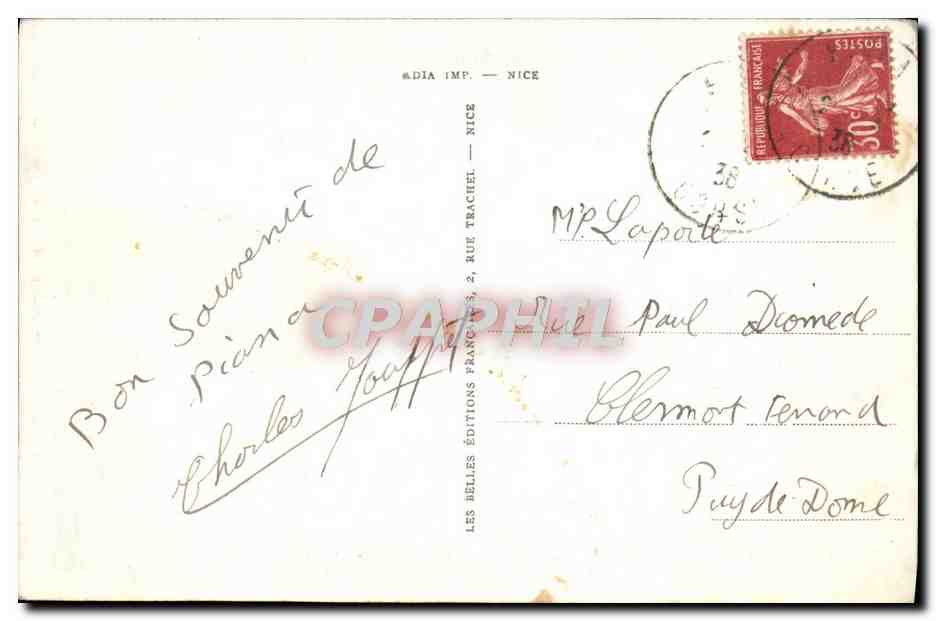 ADIA IMP. — NICE
LES BELLES ÉDITIONS FRANÇAISES, 2, RUE TRACHEL — NICE
Bon Souvenir de
Piana
Charles
CPAPHIL
POSTES
REPUBLIQUE FRANÇAISE
30c
38
38
Mr P. Laporte
Rue Paul Diomede
Clermont Ferrand
Puy de Dome